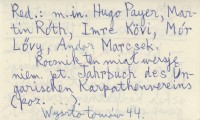 Red.: m.in. Hugo Payer, Mar-
tin Róth, Imre Kövi, Mór
Lővy, Andor Marcsek.
Rocznik ten miał wersję
niem. pt. Jahrbuch des Un-
garischen Karpathenvereins
(poz. ...).
Wyszło tomów 44.